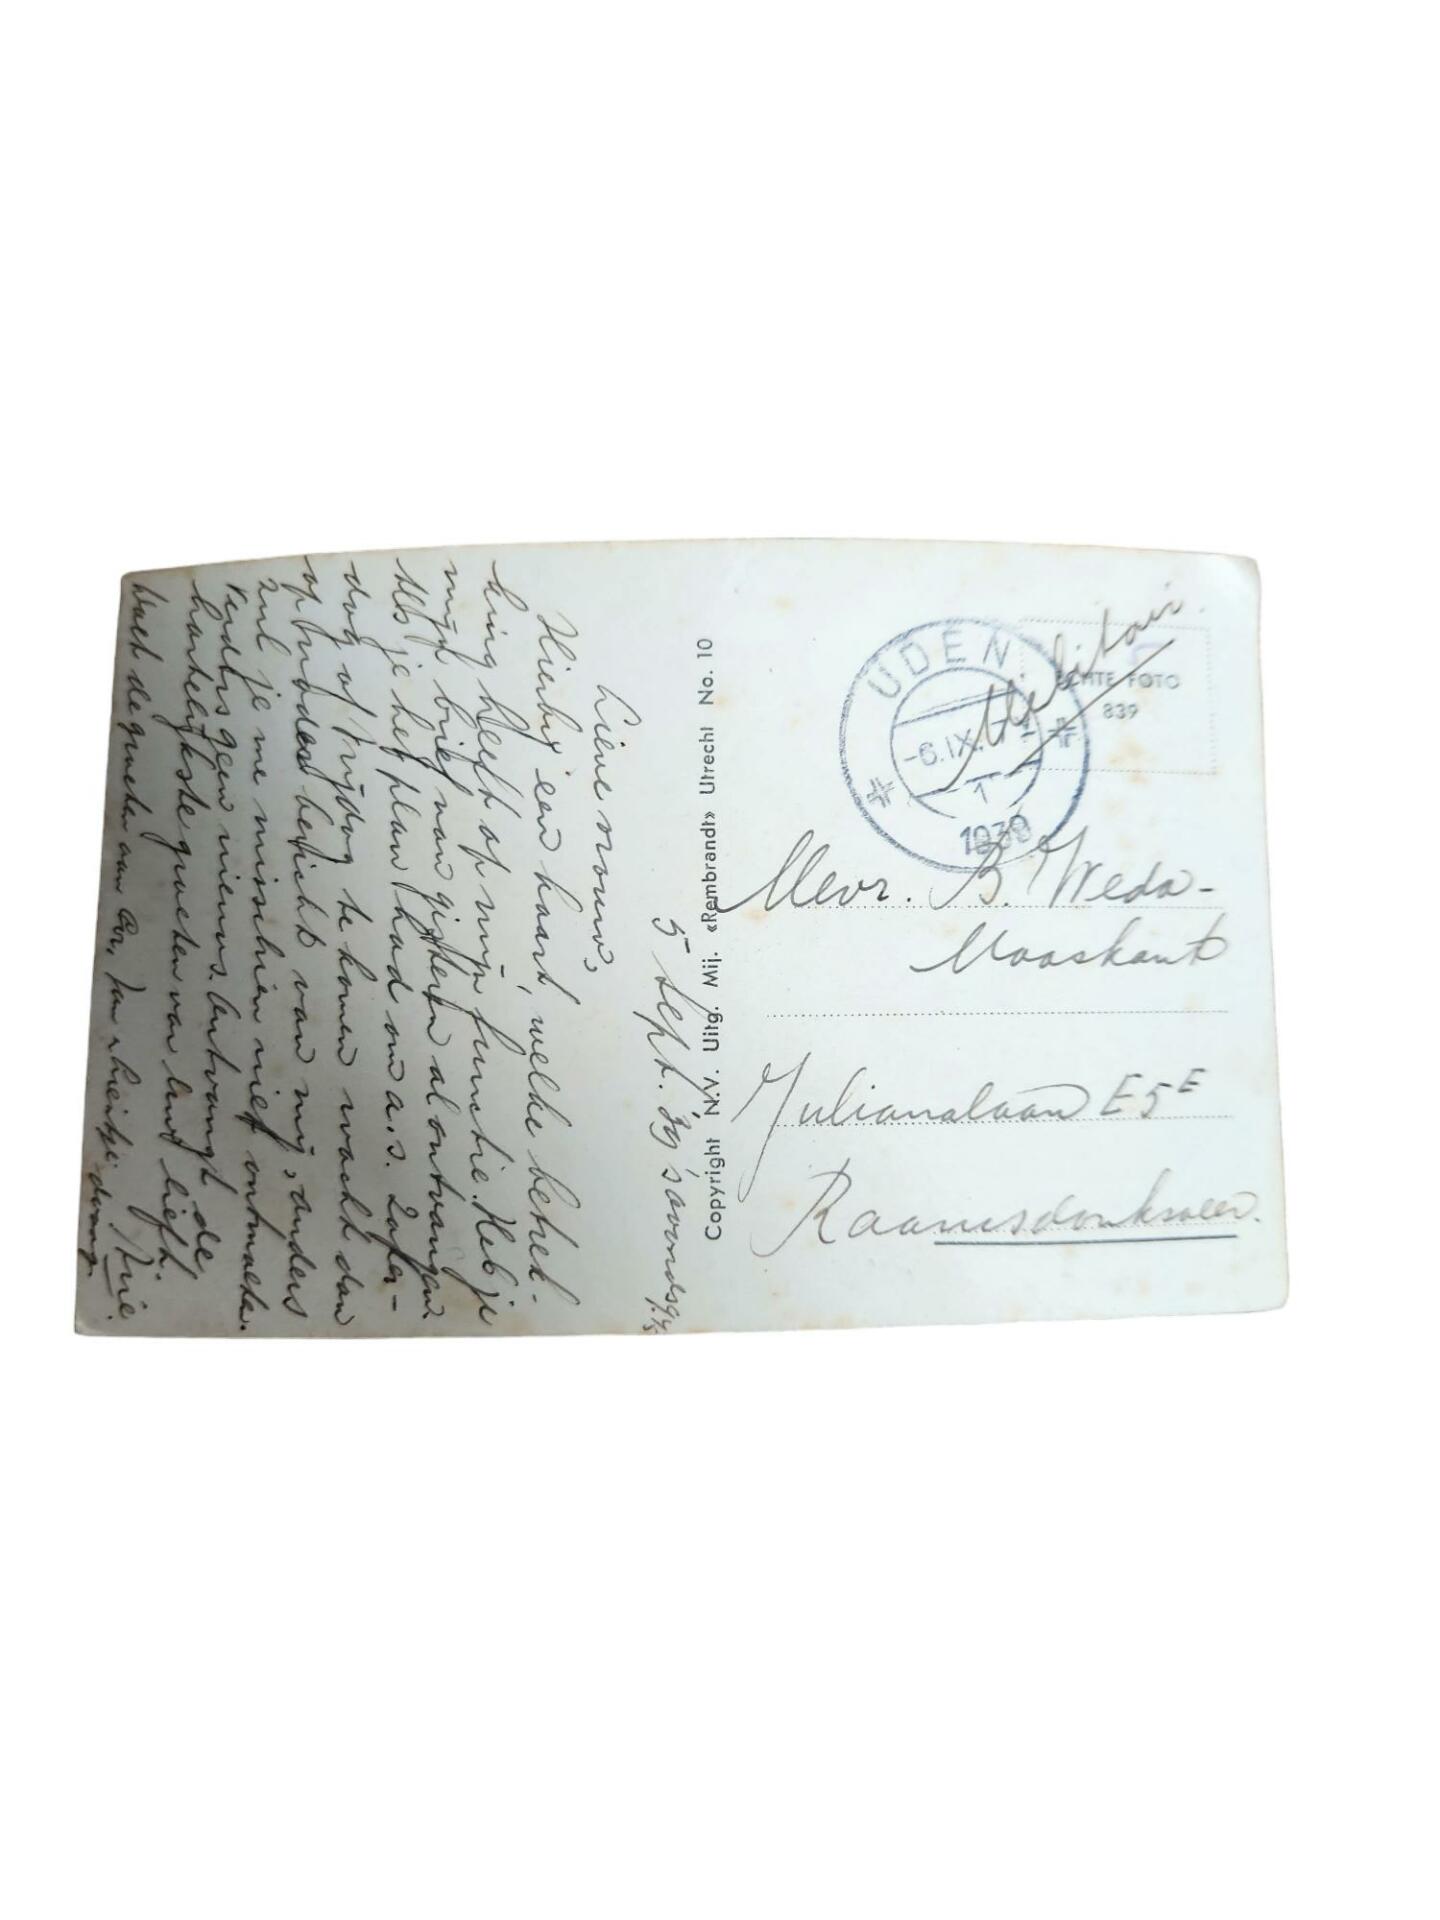 5 Sept. 39 's avonds 9.15
Lieve vrouw,
Hierbij een kaart, welke betrek-
king heeft op mijn functie. Heb je
mijn brief van gisteren al ontvangen
Als je het plan had om a.s. Zater-
dag of Vrijdag te komen wacht dan
op nader bericht van mij, anders
zul je me misschien niet ontmoeten.
Verders geen nieuws. Ontvangt de
hartelijkste groeten van
Doet de groeten aan Cor, Jan
UDEN
-6.IX.
1
1939
Militair
ECHTE FOTO
839
Copyright N.V. Uitg. Mij. «Rembrandt» Utrecht No. 10
Mevr. B. Weda-
Maaskant
Julianalaan E5E
Raamsdonksveer.